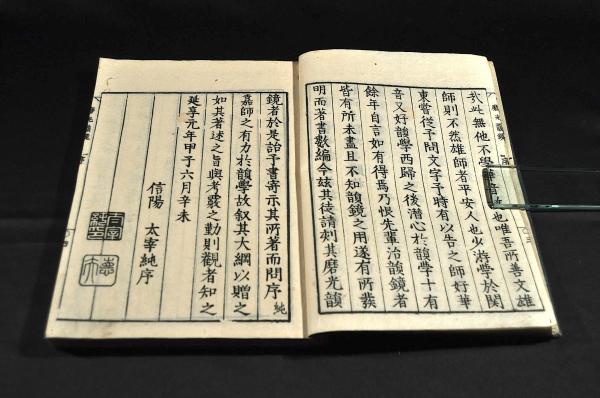 磨光韻鏡 序 三
此無他不學華音也唯吾所善文雄
師則不然雄師者平安人也少游學於關
東嘗從予問文字予時有以告之師好華
音又好韻學西歸之後潛心於韻學十有
餘年自言如有得焉乃恨先輩治韻鏡者
皆有所未盡且不知韻鏡之用遂有所發
明而著書數編今玆其徒請刻其磨光韻
鏡者於是詒予書寄示其所著而問序純
嘉師之有力於韻學故叙其大綱以贈之
如其著述之旨與考覈之勤則觀者知之
延享元年甲子六月辛未
信陽 太宰純序